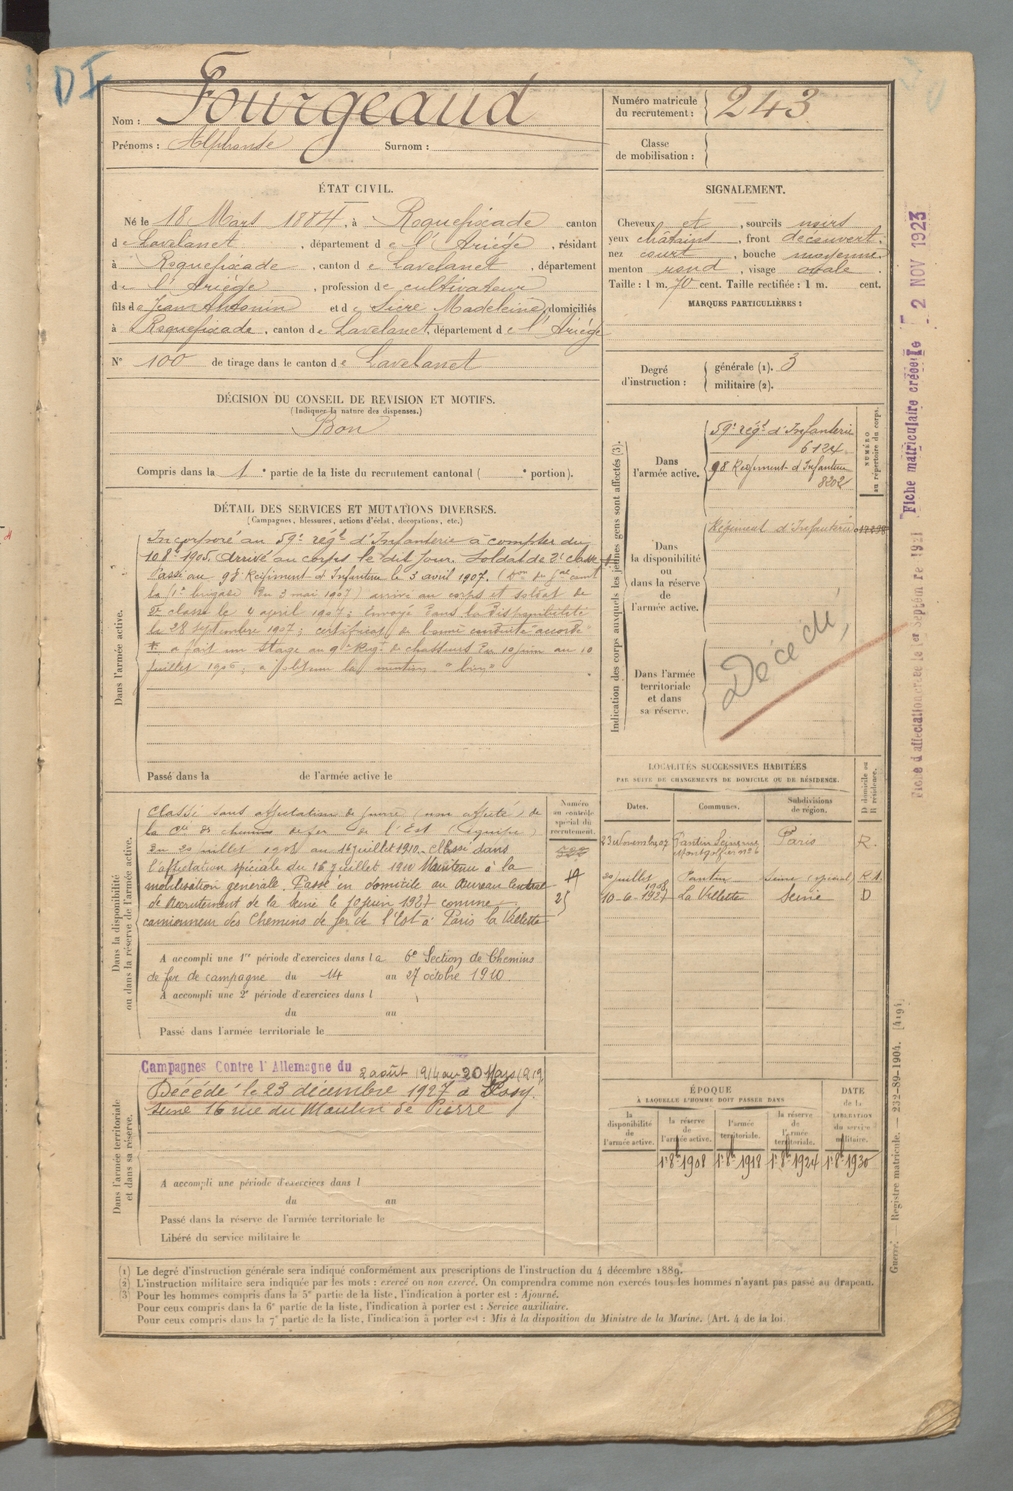 DI
Nom : Fourgeaud
Prénoms : Alphonse Surnom :
Numéro matricule du recrutement : 243
Classe de mobilisation :
ÉTAT CIVIL.
Né le 18 Mars 1884, à Roquefixade canton
de Lavelanet, département de l'Ariége, résidant
à Roquefixade, canton de Lavelanet, département
de l'Ariége, profession de cultivateur
fils de Jean Antonin et de Sicre Madeleine, domiciliés
à Roquefixade, canton de Lavelanet, département de l'Ariége
N° 100 de tirage dans le canton de Lavelanet
SIGNALEMENT.
Cheveux et, sourcils noirs
yeux châtains, front découvert.
nez court, bouche moyenne
menton rond, visage ovale
Taille : 1 m. 70 cent. Taille rectifiée : 1 m. cent.
MARQUES PARTICULIÈRES :
Degré d'instruction : générale (1). 3
militaire (2).
DÉCISION DU CONSEIL DE REVISION ET MOTIFS.
(Indiquer la nature des dispenses.)
Bon
Compris dans la 1e partie de la liste du recrutement cantonal ( e portion).
DÉTAIL DES SERVICES ET MUTATIONS DIVERSES.
(Campagnes, blessures, actions d'éclat, décorations, etc.)
Dans l'armée active.
Incorporé au 59e régt d'Infanterie à compter du
10 8bre 1905. Arrivé au corps le dit jour. Soldat de 2e classe
Passé au 98 Régiment d'Infanterie le 3 avril 1907.
la 1e brigade du 3 mai 1907) arrivé au corps et soldat de
2e classe le 4 avril 1907; Envoyé dans la disponibilité
le 28 septembre 1907; certificat de bonne conduite accordé
a fait un stage au 9e Régt de chasseurs du 10 juin au 10
juillet 1906; a obtenu la mention "bien"
Passé dans la de l'armée active le
Indication des corps auxquels les jeunes gens sont affectés (3).
NUMÉRO au répertoire du corps.
Dans l'armée active.
59e régt d'Infanterie
6124
98 Régiment d'Infanterie
8202
Dans la disponibilité ou dans la réserve de l'armée active.
Régiment d'Infanterie
Dans l'armée territoriale et dans sa réserve.
Décédé
Fiche d'affectation créée le 1er Septembre 1921 Fiche matriculaire créée le - 2 NOV 1923
LOCALITÉS SUCCESSIVES HABITÉES
PAR SUITE DE CHANGEMENTS DE DOMICILE OU DE RÉSIDENCE.
Dates. Communes. Subdivisions de région. D domicile ou R résidence.
23 Novembre 07 Pantin Paris R.
20 juillet 1908 Pantin Seine
10-6-1927 La Villette Seine D
Dans la disponibilité ou dans la réserve de l'armée active.
Numéro au contrôle spécial du recrutement.
Classé sans affectation de guerre (non affecté) de
la Cie des chemins de fer de l'Est (équipe)
Du 20 juillet 1908 au 16 juillet 1910. Classé dans
l'affectation spéciale du 16 juillet 1910 Maintenu à la
mobilisation générale. Passé en domicile au Bureau Central
de Recrutement de la Seine le 10 juin 1927 comme
camionneur des Chemins de fer de l'Est à Paris la Villette
A accompli une 1re période d'exercices dans la 6e Section de Chemins
de fer de campagne du 14 au 27 octobre 1910.
A accompli une 2e période d'exercices dans l
du au
Passé dans l'armée territoriale le
Dans l'armée territoriale et dans sa réserve.
Campagnes Contre l'Allemagne du 2 août 1914 au 20 Mars 1919
Décédé le 23 décembre 1927 à
Seine 16 rue du Moulin de Pierre
A accompli une période d'exercices dans l
du au
Passé dans la réserve de l'armée territoriale le
Libéré du service militaire le
ÉPOQUE
À LAQUELLE L'HOMME DOIT PASSER DANS
la disponibilité de l'armée active. la réserve de l'armée active. l'armée territoriale. la réserve de l'armée territoriale. DATE de la LIBÉRATION du service militaire.
1er 8bre 1908 1er 8bre 1918 1er 8bre 1924 1er 8bre 1930
Guerre. — Registre matricule. — 232-89-1904. [419]
(1) Le degré d'instruction générale sera indiqué conformément aux prescriptions de l'instruction du 4 décembre 1889.
(2) L'instruction militaire sera indiquée par les mots : exercé ou non exercé. On comprendra comme non exercés tous les hommes n'ayant pas passé au drapeau.
(3) Pour les hommes compris dans la 5e partie de la liste, l'indication à porter est : Ajourné.
Pour ceux compris dans la 6e partie de la liste, l'indication à porter est : Service auxiliaire.
Pour ceux compris dans la 7e partie de la liste, l'indication à porter est : Mis à la disposition du Ministre de la Marine. (Art. 4 de la loi.